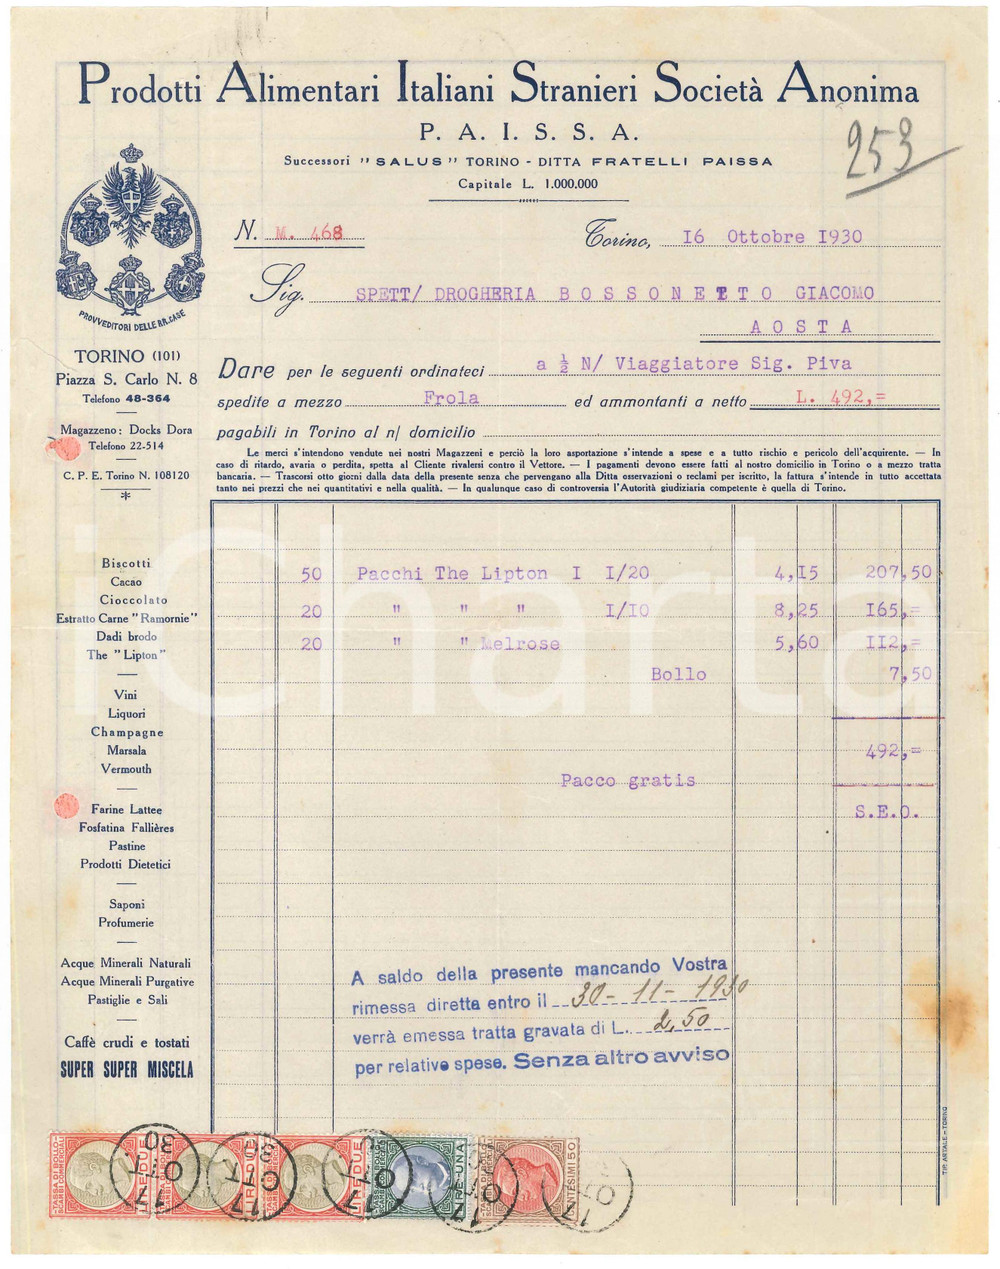 Prodotti Alimentari Italiani Stranieri Società Anonima
P. A. I. S. S. A.
Successori "SALUS" TORINO - DITTA FRATELLI PAISSA
Capitale L. 1.000.000
253
N. M. 468
Torino, 16 Ottobre 1930
Sig. SPETT/ DROGHERIA BOSSONETTO GIACOMO
AOSTA
PROVVEDITORI DELLE RR. CASE
TORINO (101)
Piazza S. Carlo N. 8
Telefono 48-364
Magazzeno: Docks Dora
Telefono 22-514
C. P. E. Torino N. 108120
*
Dare per le seguenti ordinateci a ½ N/ Viaggiatore Sig. Piva
spedite a mezzo Frola ed ammontanti a netto L. 492,=
pagabili in Torino al n/ domicilio
Le merci s'intendono vendute nei nostri Magazzeni e perciò la loro asportazione s'intende a spese e a tutto rischio e pericolo dell'acquirente. — In
caso di ritardo, avaria o perdita, spetta al Cliente rivalersi contro il Vettore. — I pagamenti devono essere fatti al nostro domicilio in Torino o a mezzo tratta
bancaria. — Trascorsi otto giorni dalla data della presente senza che pervengano alla Ditta osservazioni o reclami per iscritto, la fattura s'intende in tutto accettata
tanto nei prezzi che nei quantitativi e nella qualità. — In qualunque caso di controversia l'Autorità giudiziaria competente è quella di Torino.
Biscotti
Cacao
Cioccolato
Estratto Carne "Ramornie"
Dadi brodo
The "Lipton"
Vini
Liquori
Champagne
Marsala
Vermouth
Farine Lattee
Fosfatina Fallières
Pastine
Prodotti Dietetici
Saponi
Profumerie
Acque Minerali Naturali
Acque Minerali Purgative
Pastiglie e Sali
Caffè crudi e tostati
SUPER SUPER MISCELA
50 Pacchi The Lipton I 1/20 4,15 207,50
20 " " " 1/10 8,25 165,=
20 " " Melrose 5,60 112,=
Bollo 7,50
492,=
Pacco gratis
S.E.O.
iCharta
A saldo della presente mancando Vostra
rimessa diretta entro il 30-11-1930
verrà emessa tratta gravata di L. 2,50
per relative spese. Senza altro avviso
TASSA DI BOLLO
LIRE DUE
LIRE DUE
LIRE DUE
LIRE UNA
CENTESIMI 50
17 OTT 30
17 OTT 30
17 OTT
17 OTT
17 OTT
TIP. ARTALE - TORINO